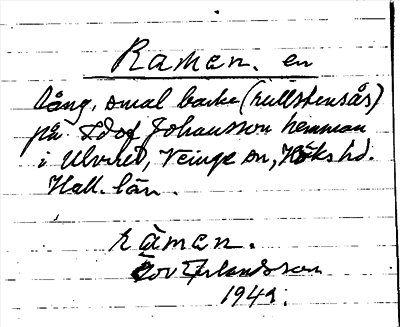 Ramen. en
lång, smal backe (rullstensås)
på Johansson hemman
i Ulvered, Veinge sn, Höks hd.
Hall. län.
råmen.
Erlandsson
1941.